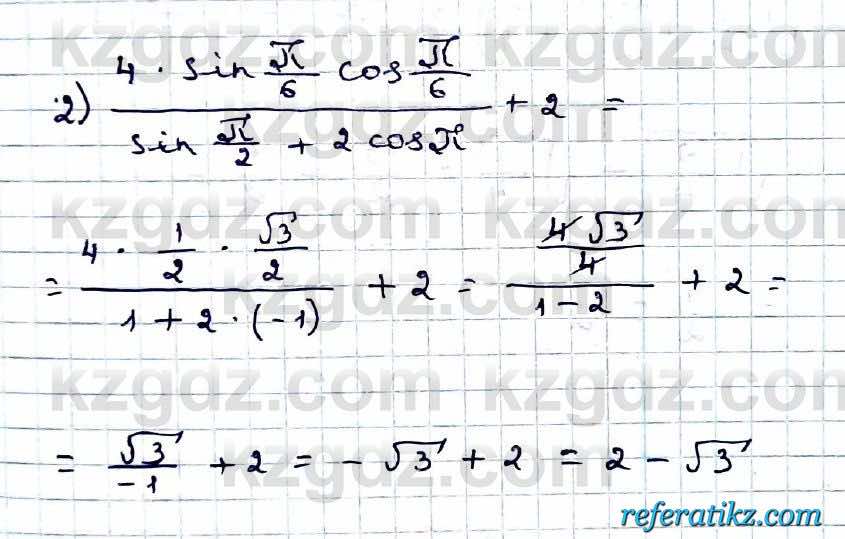 kzgdz.com kzgdz.com
2) (4 · sin π/6 cos π/6) / (sin π/2 + 2 cos π) + 2 =
kzgdz.com
kzgdz.com kzgdz.com
= (4 · 1/2 · √3/2) / (1 + 2 · (-1)) + 2 = (4√3/4) / (1 - 2) + 2 =
kzgdz.com
kzgdz.com kzgdz.com
= √3/-1 + 2 = - √3 + 2 = 2 - √3
kzgdz.com
referatikz.com